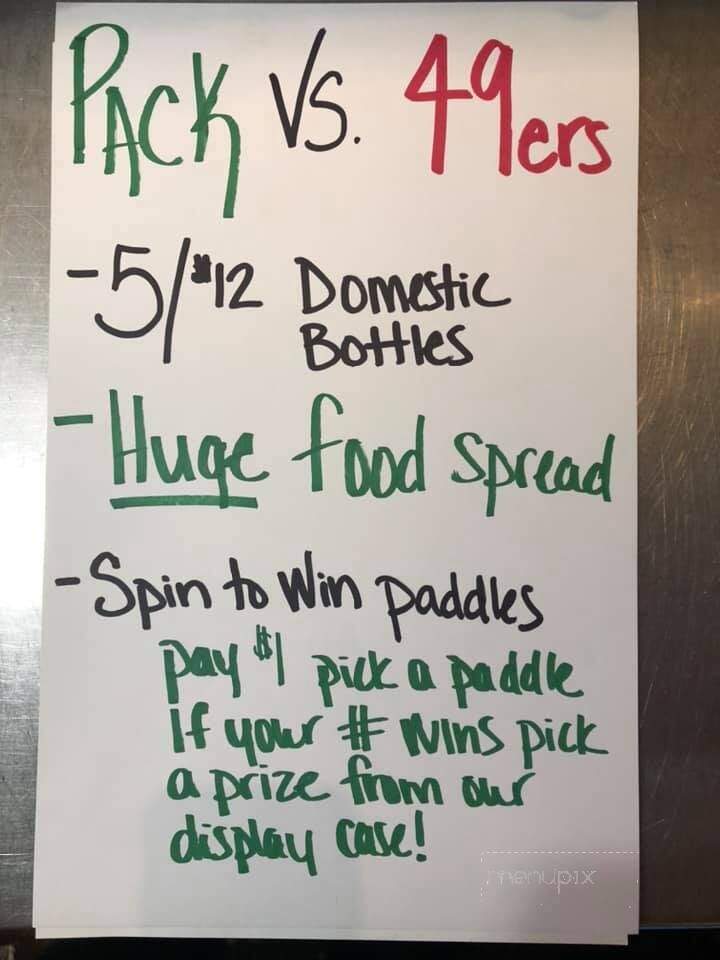 PACK VS. 49ers
-5/$12 Domestic
Bottles
-Huge food spread
-Spin to Win paddles
pay $1 pick a paddle
If your # wins pick
a prize from our
display case!
menupix